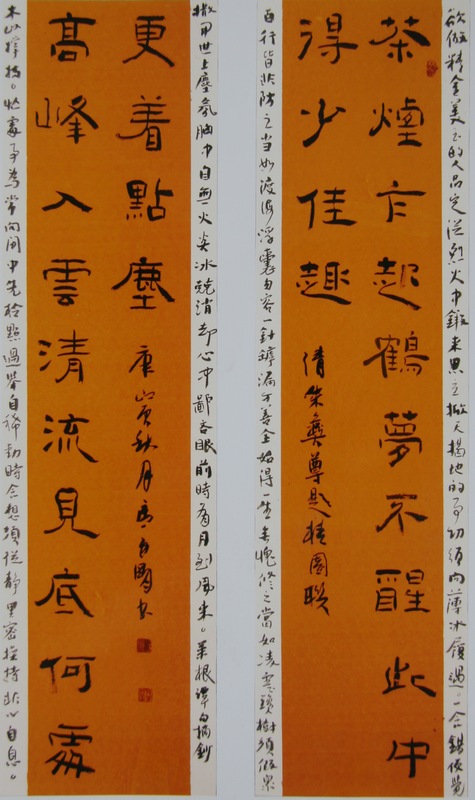 欲做精金美玉的人品定從烈火中鍛來思立掀天揭地的事功須向薄冰履過。一念錯便覺
茶煙乍起鶴夢不醒此中
得少佳趣
清朱彝尊題園聯
百行皆非防之当如渡海浮囊勿容一針罅漏万善全始得一生無愧修之當如凌雲寶樹須假衆
木以撐持。忙處事為常向閒中先檢點過舉自稀動時念想須從靜里密操持非心自息。
高峰入雲清流見底何處
更着點塵
庚寅秋月鵬書
撒開世上塵氛胸中自無火炎冰兢消却心中鄙吝眼前時有月到風來。菜根譚句摘鈔